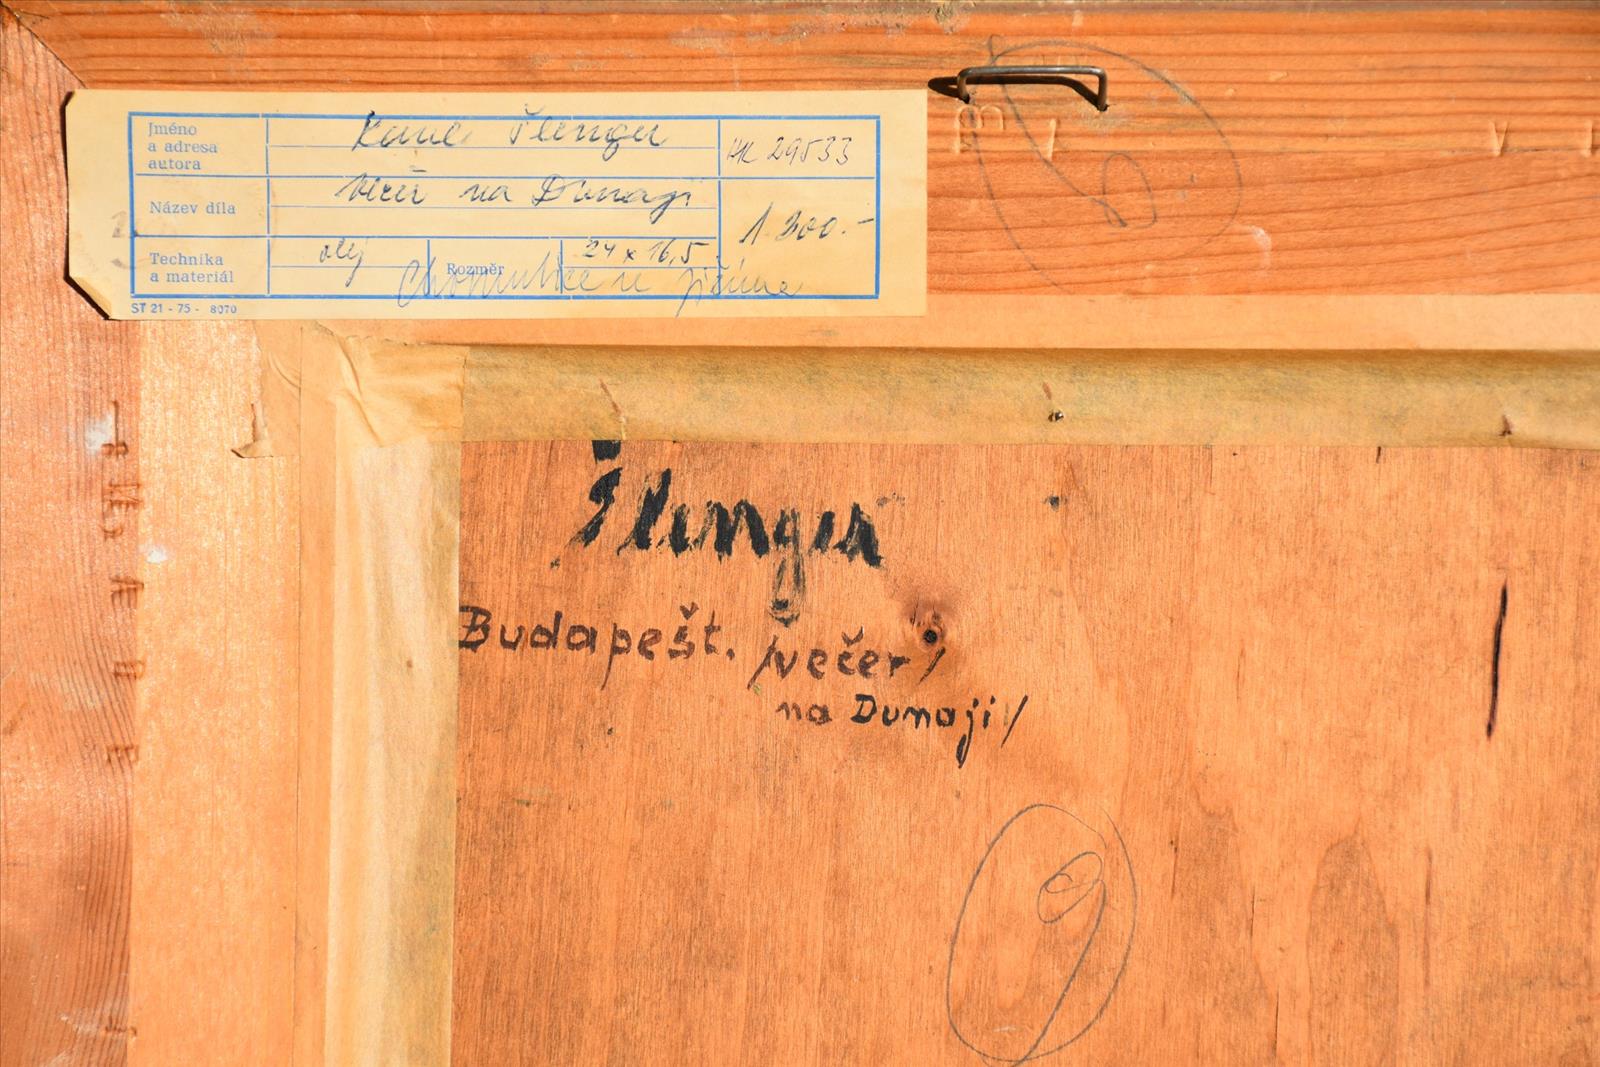 Jméno
a adresa
autora
Karel Šlenger
HK 29533
Název díla
Večer na Dunaji
1.300.-
Technika
a materiál
olej
Rozměr
24 x 16,5
Chomutice u Jičína
ST 21 - 75 - 8070
Šlenger
Budapešť. /večer/
na Dunaji/
9